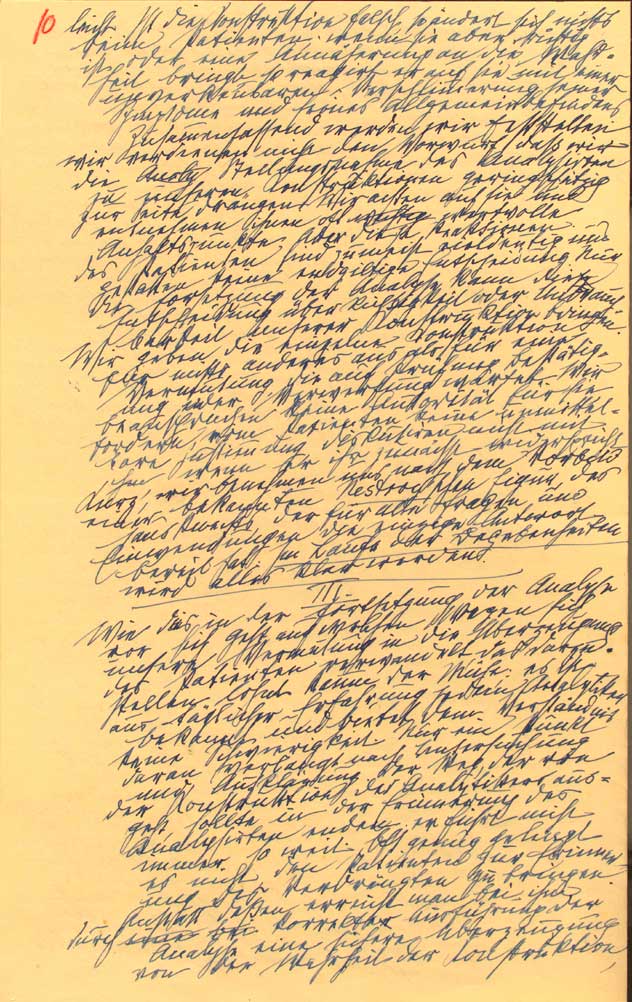 10
leicht. Ist die Konstruktion falsch, so ändert sich nichts
beim Patienten; wenn sie aber richtig
ist oder eine Annäherung an die Wahr-
heit bringt, so reagirt er auf sie mit einer
unverkennbaren Verschlimmerung seiner
Symptome und seines Allgemeinbefindens
Zusammenfassend werden wir feststellen
wir verdienen nicht den Vorwurf, daß wir
die Stellungnahme des Analysirten
zu unseren Konstruktionen geringschätzig
zur Seite drängen. Wir achten auf sie und
entnehmen ihnen oft wertvolle
Anhaltspunkte. Aber diese Reaktionen
des Patienten sind zumeist vieldeutig und
gestatten keine endgiltige Entscheidung. Nur
die Fortsetzung der Analyse kann die
Entscheidung über Richtigkeit oder Unbrauch-
barkeit unserer Konstruktion bringen.
Wir geben die einzelne Konstruktion
für nichts anderes aus als für eine
Vermutung, die auf Prüfung, Bestätig-
ung oder Verwerfung wartet. Wir
beanspruchen keine Autorität für sie
fordern vom Patienten keine unmittel-
bare Zustimmung, diskutiren nicht mit
ihm, wenn er ihr zunächst widerspricht
Kurz, wir benehmen uns nach dem Vorbild
einer bekannten Nestroyschen Figur, des
Hausknechts, der für alle Fragen und
Einwendungen die einzige Antwort
bereit hat: Im Laufe der Begebenheiten
wird alles klar werden.
III.
Wie dies in der Fortsetzung der Analyse
vor sich geht, auf welchen Wegen sich
unsere Vermutung in die Überzeugung
des Patienten verwandelt, das darzu-
stellen lohnt kaum der Mühe; es ist
aus täglicher Erfahrung jedem Analytiker
bekannt und bietet dem Verständnis
keine Schwierigkeit. Nur ein Punkt
daran verlangt nach Untersuchung
und Aufklärung. Der Weg, der von
der Konstruktion des Analytikers aus-
geht, sollte in der Erinnerung des
Analysirten enden; er führt nicht
immer so weit. Oft genug gelingt
es nicht, den Patienten zur Erinner-
ung des Verdrängten zu bringen.
Anstatt dessen erreicht man bei ihm
durch korrekter Ausführung der
Analyse eine sichere Überzeugung
von der Wahrheit der Konstruktion,